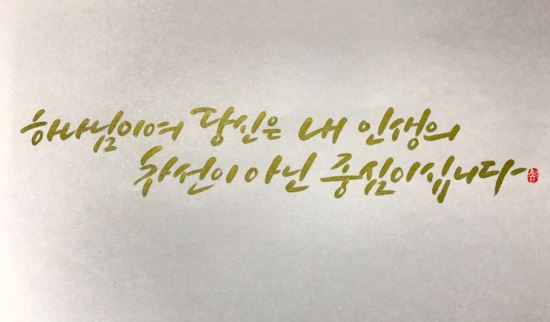 하나님이여 당신은 내 인생의
차선이 아닌 중심이십니다